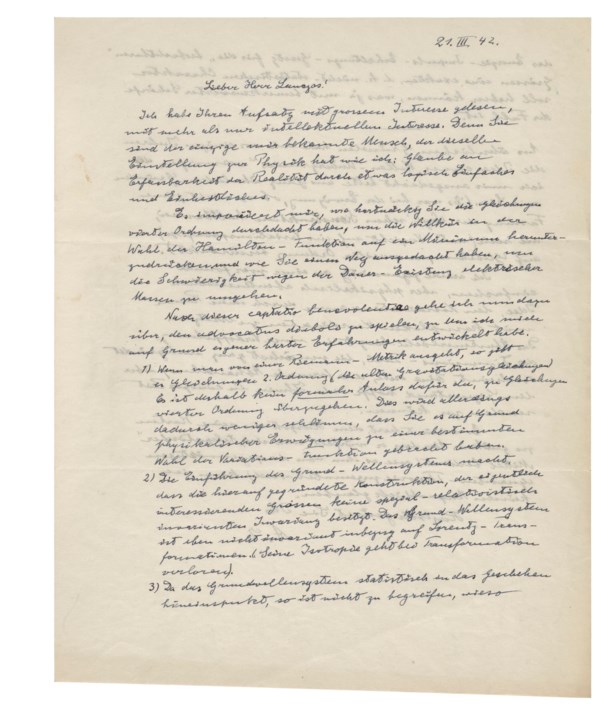 21. III. 42.
Lieber Herr Lanczos!
Ich habe Ihren Aufsatz mit grossem Interesse gelesen,
mit mehr als nur intellektuellem Interesse. Denn Sie
sind der einzige mir bekannte Mensch, der dieselbe
Einstellung zur Physik hat wie ich: Glaube an
Erfassbarkeit der Realität durch etwas logisch Einfaches
und Einheitliches.
Es imponiert mir, wie hartnäckig Sie die Gleichungen
vierter Ordnung durchdacht haben, um die Willkür in der
Wahl der Hamilton-Funktion auf ein Minimum herunter-
zudrücken und wie Sie einen Weg ausgedacht haben, um
die Schwierigkeit wegen der Dauer-Existenz elektrischer
Massen zu umgehen.
Nach dieser captatio benevolentiae gehe ich nun dazu
über, den advocatus diaboli zu spielen, zu dem ich mich
auf Grund eigener harter Erfahrungen entwickelt habe.
1) Wenn man von einer Riemann-Metrik ausgeht, so gibt
es Gleichungen 2. Ordnung (die alten Gravitationsgleichungen)
Es ist deshalb kein formaler Anlass dafür da, zu Gleichungen
vierter Ordnung überzugehen. Dies wird allerdings
dadurch weniger schlimm, dass Sie es auf Grund
physikalischer Erwägungen zu einer bestimmten
Wahl der Variations-Funktion gebracht haben.
2) Die Einführung des Grund-Wellensystems macht,
dass die hierauf gegründete Konstruktion, der eigentlich
interessierenden Grössen keine spezial-relativistisch
invarianten Invarianz besitzt. Das Grund-Wellensystem
ist eben nicht invariant inbezug auf Lorentz-trans-
formationen (Seine Isotropie geht bei Transformation
verloren).
3) Da das Grundwellensystem statistisch in das Geschehen
hineinspukt, so ist nicht zu begreifen, wieso